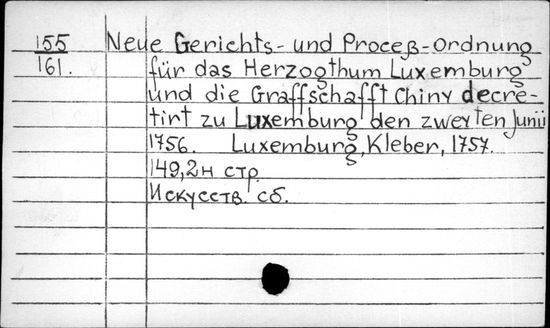 155 Neue Gerichts- und Proceß-ordnung
161. für das Herzogthum Luxemburg
und die Graffschafft Chiny decre-
tirt zu Luxemburg den zweyten Junii
1756. Luxemburg, Kleber, 1757.
149,2н стр.
Искусств. сб.